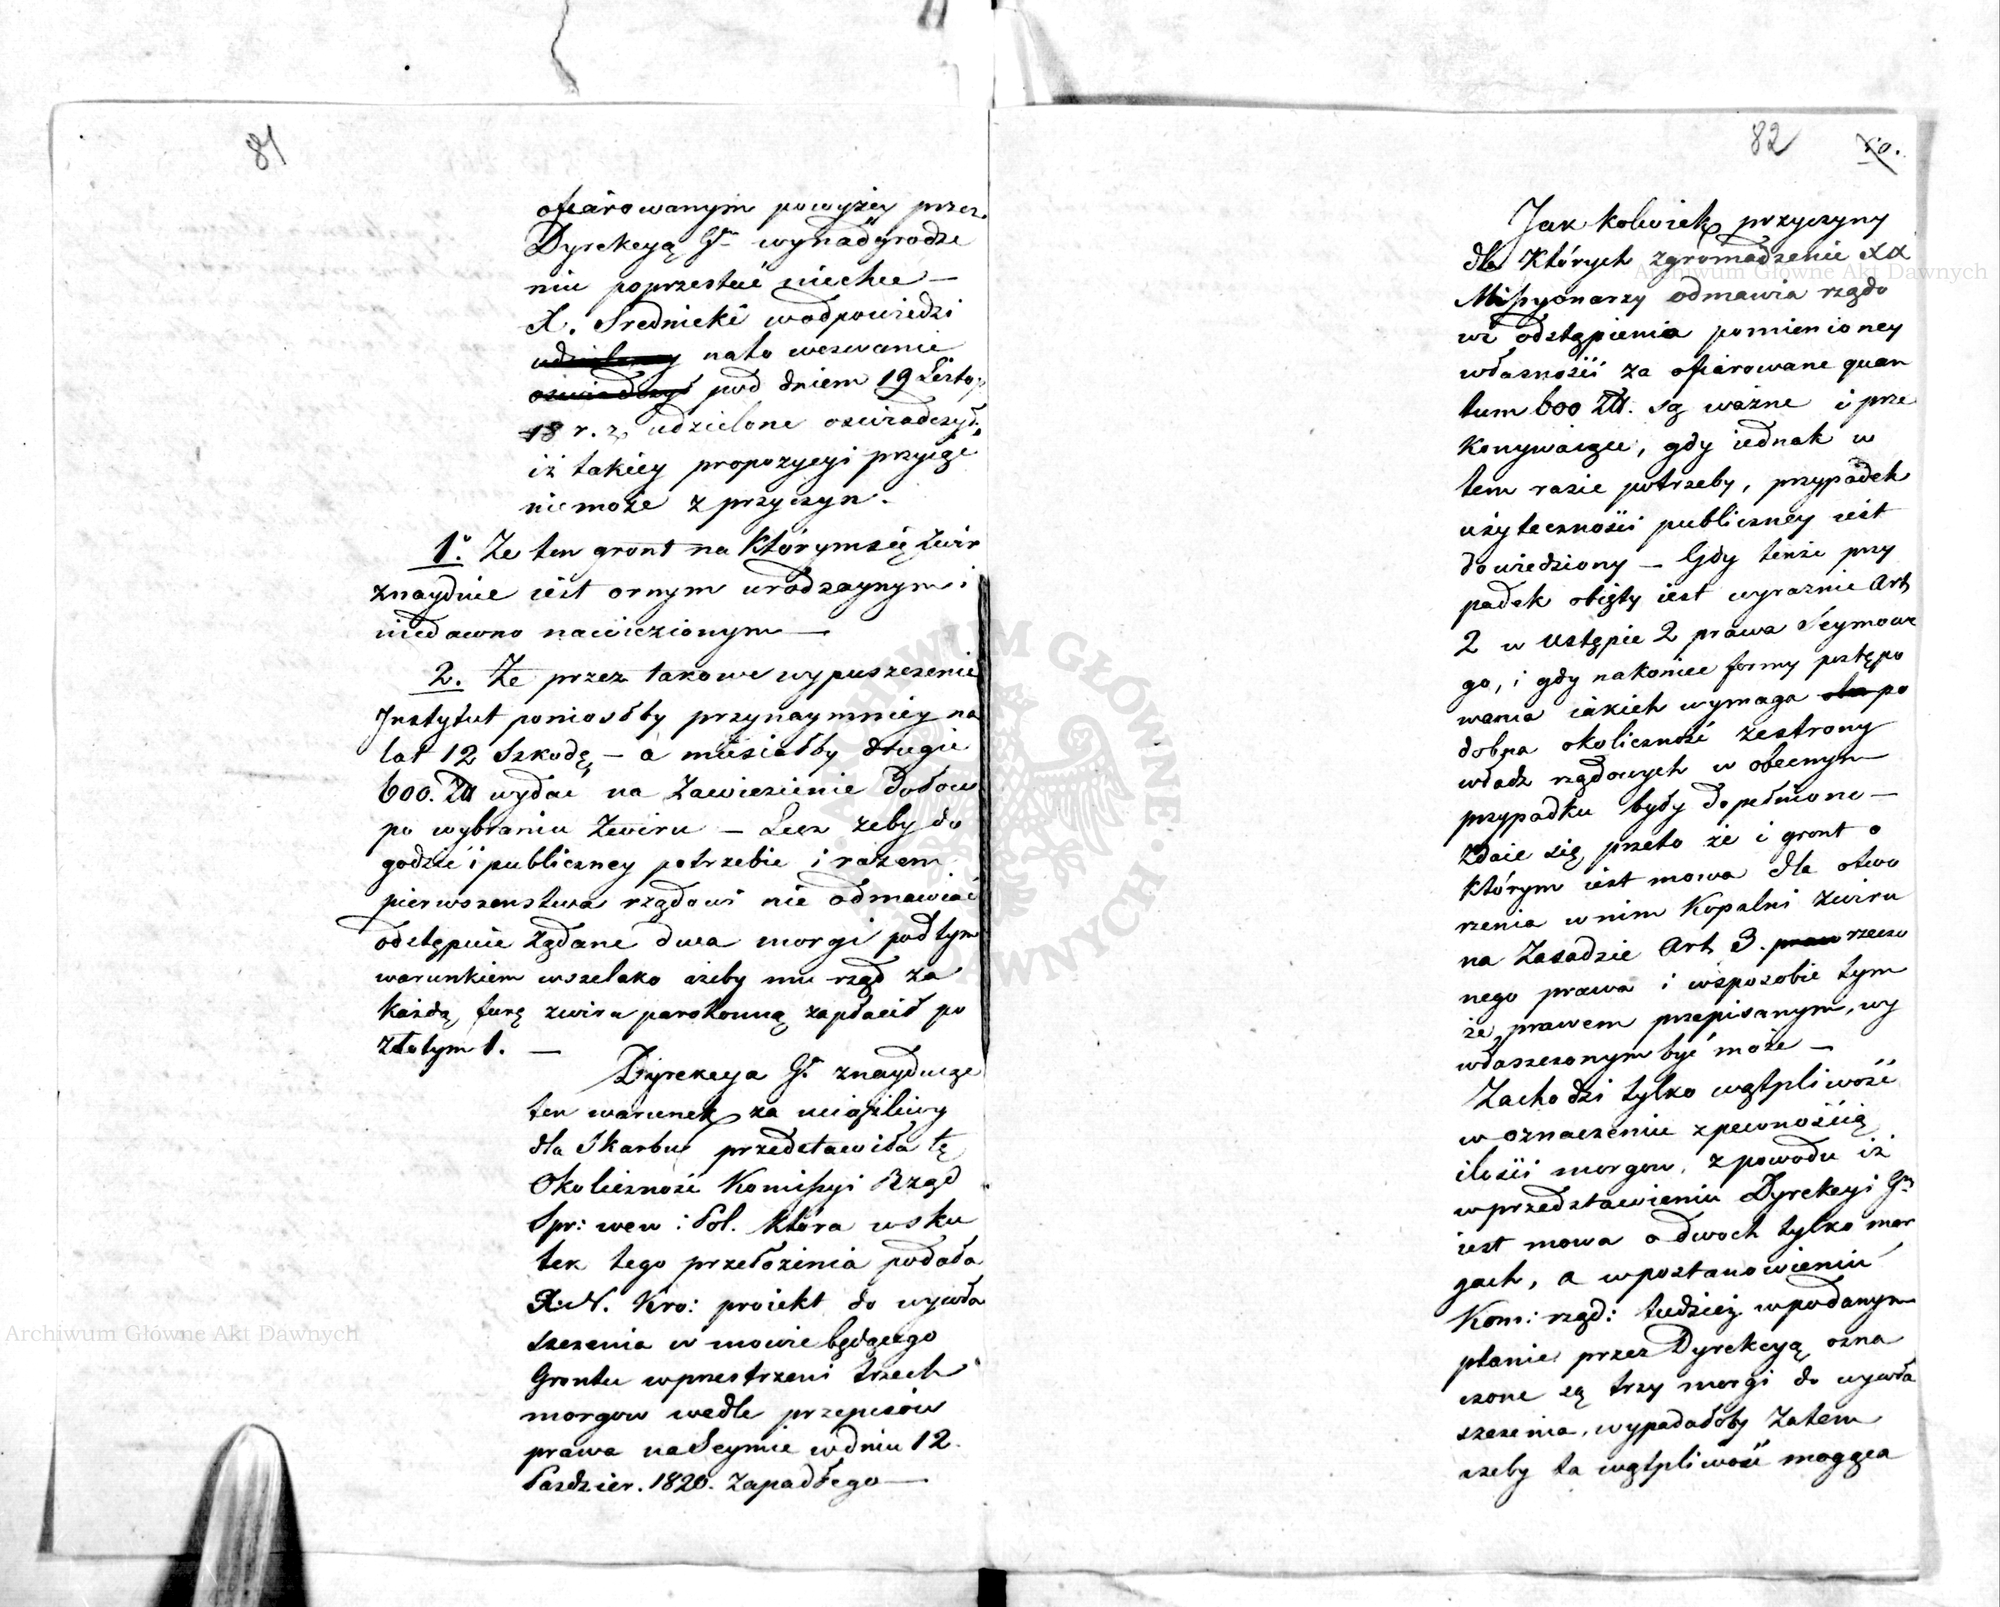 81
ofiarowanym powyżey przez
Dyrekcyą Gł. wynadgrodze
niu poprzestać niechce —
X. Srednicki w odpowiedzi
na to wezwanie
pod dniem 19 Listop:
18 r. z. udzielone oswiadczył,
iż takiey propozycyi przyiąć
niemoże z przyczyn.
1° Że ten gront na którym się żwir
znayduie iest ornym urodzaynym i
niedawno nawiezionym —
2. Że przez takowe wypuszczenie
Instytut poniosłby przynaymniey na
lat 12 Szkodę, — a musiałby drugie
600. Zł wydać na Zawiezienie dołow
po wybraniu Żwiru — Lecz żeby do
godzić i publiczney potrzebie i razem
pierwszenstwa rządowi nie odmawiać
odstępuie żądane dwa morgi pod tym
warunkiem wszelako ażeby mu rząd za
każdą furę zwiru parokonną zapłacił po
złotym 1. —
Dyrekcya Gł. znayduiąc
ten warunek za uciążliwy
dla Skarbu przedstawiła tę
Okoliczność Komissyi Rząd
Spr: wew: i Pol. która w sku
tek tego przełożenia podała
X. N. Kro: proiekt do wywła
szczenia w mowie będącego
Grontu w przestrzeni trzech
morgow wedle przepisów
prawa na Seymie w dniu 12.
Pazdzier. 1820. zapadłego —
82
Jak kolwiek przyczyny
dla których zgromadzenie XX
Missyonarzy odmawia rządo
wi odstąpienia pomienioney
własności za ofiarowane quan
tum 600 Zł. są ważne i prze
konywaiące, gdy iednak w
tem razie potrzeby, przypadek
użyteczności publiczney iest
dowiedziony — Gdy tenże przy
padek obięty iest wyraznie Art
2 w ustępie 2 prawa Seymowe
go, i gdy nakoniec formy postępo
wania iakich wymaga po
dobna okoliczność ze strony
władz rządowych w obecnym
przypadku były dopełnione —
Zdaie się, przeto że i gront o
którym iest mowa dla otwo
rzenia w nim Kopalni żwiru
na Zasadzie Art. 3. rzeczo
nego prawa i w sposobie tym
że, prawem przepisanym, wy
właszczonym być może —
Zachodzi tylko wątpliwość
w oznaczeniu z pewnością
ilości morgow, z powodu iż
w przedstawieniu Dyrekcyi Gł
iest mowa o dwoch tylko mor
gach, a w postanowieniu
Kom: rząd: tudzież w podanym
planie przez Dyrekcyą ozna
czone są trzy morgi do wywła
szczenia, wypadałoby zatem
ażeby ta wątpliwość mogąca